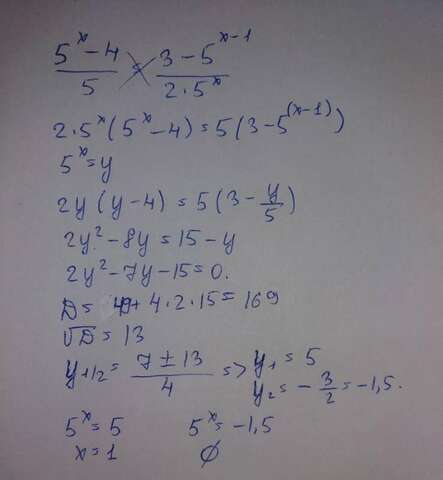 (5^x - 4)/5 = (3 - 5^(x-1))/(2·5^x)
2·5^x(5^x - 4) = 5(3 - 5^(x-1))
5^x = y
2y(y-4) = 5(3 - y/5)
2y² - 8y = 15 - y
2y² - 7y - 15 = 0.
D = 49 + 4·2·15 = 169
√D = 13
y1/2 = (7 ± 13)/4 => y1 = 5
y2 = -3/2 = -1,5.
5^x = 5 5^x = -1,5
x = 1 ∅